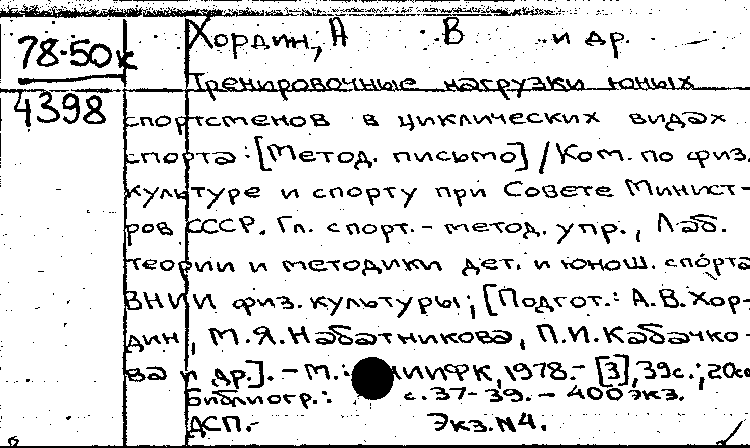 78-50к
4398
Хордин, А В и др.
Тренировочные нагрузки юных
спортсменов в циклических видах
спорта: [Метод. письмо] / Ком. по физ.
культуре и спорту при Совете Минист-
ров СССР. Гл. спорт.-метод. упр., Лаб.
теории и методики дет. и юнош. спорта
ВНИИ физ. культуры; [Подгот.: А.В.Хор-
дин, М.Я.Набатникова, П.И.Кабачко-
ва и др.]. - М.: НИИФК, 1978. - [3], 39с.; 20см
Библиогр.: с. 37-39. - 400 экз.
ДСП. - Экз. N4.